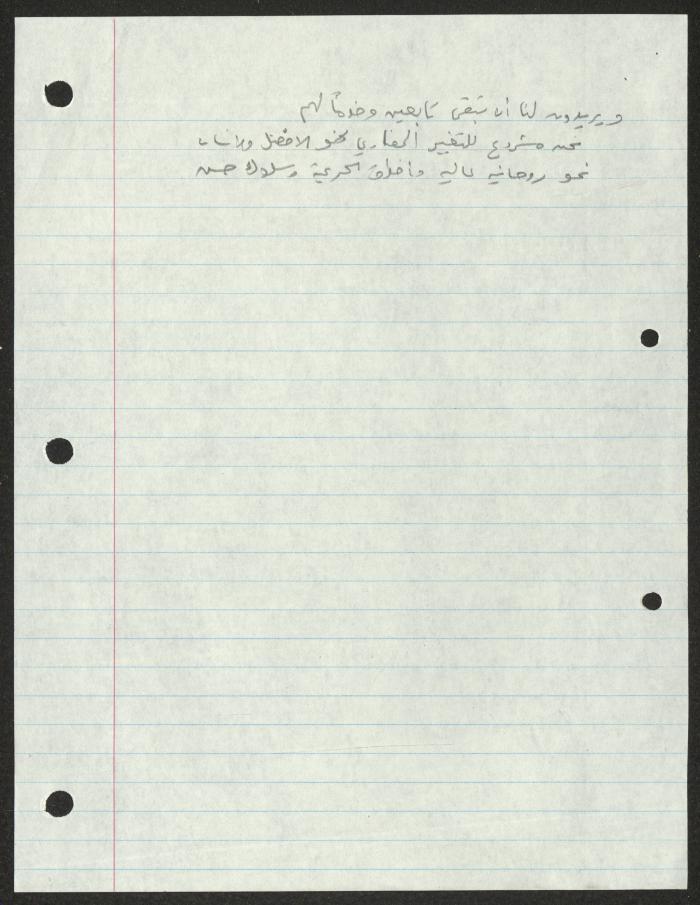 ويريدون لنا أن نبقى تابعين وخدماً لهم
نحن مشروع للتغيير الحضاري نحو الافضل
نحو روحانية عالية وأخلاق وسلوك حسن